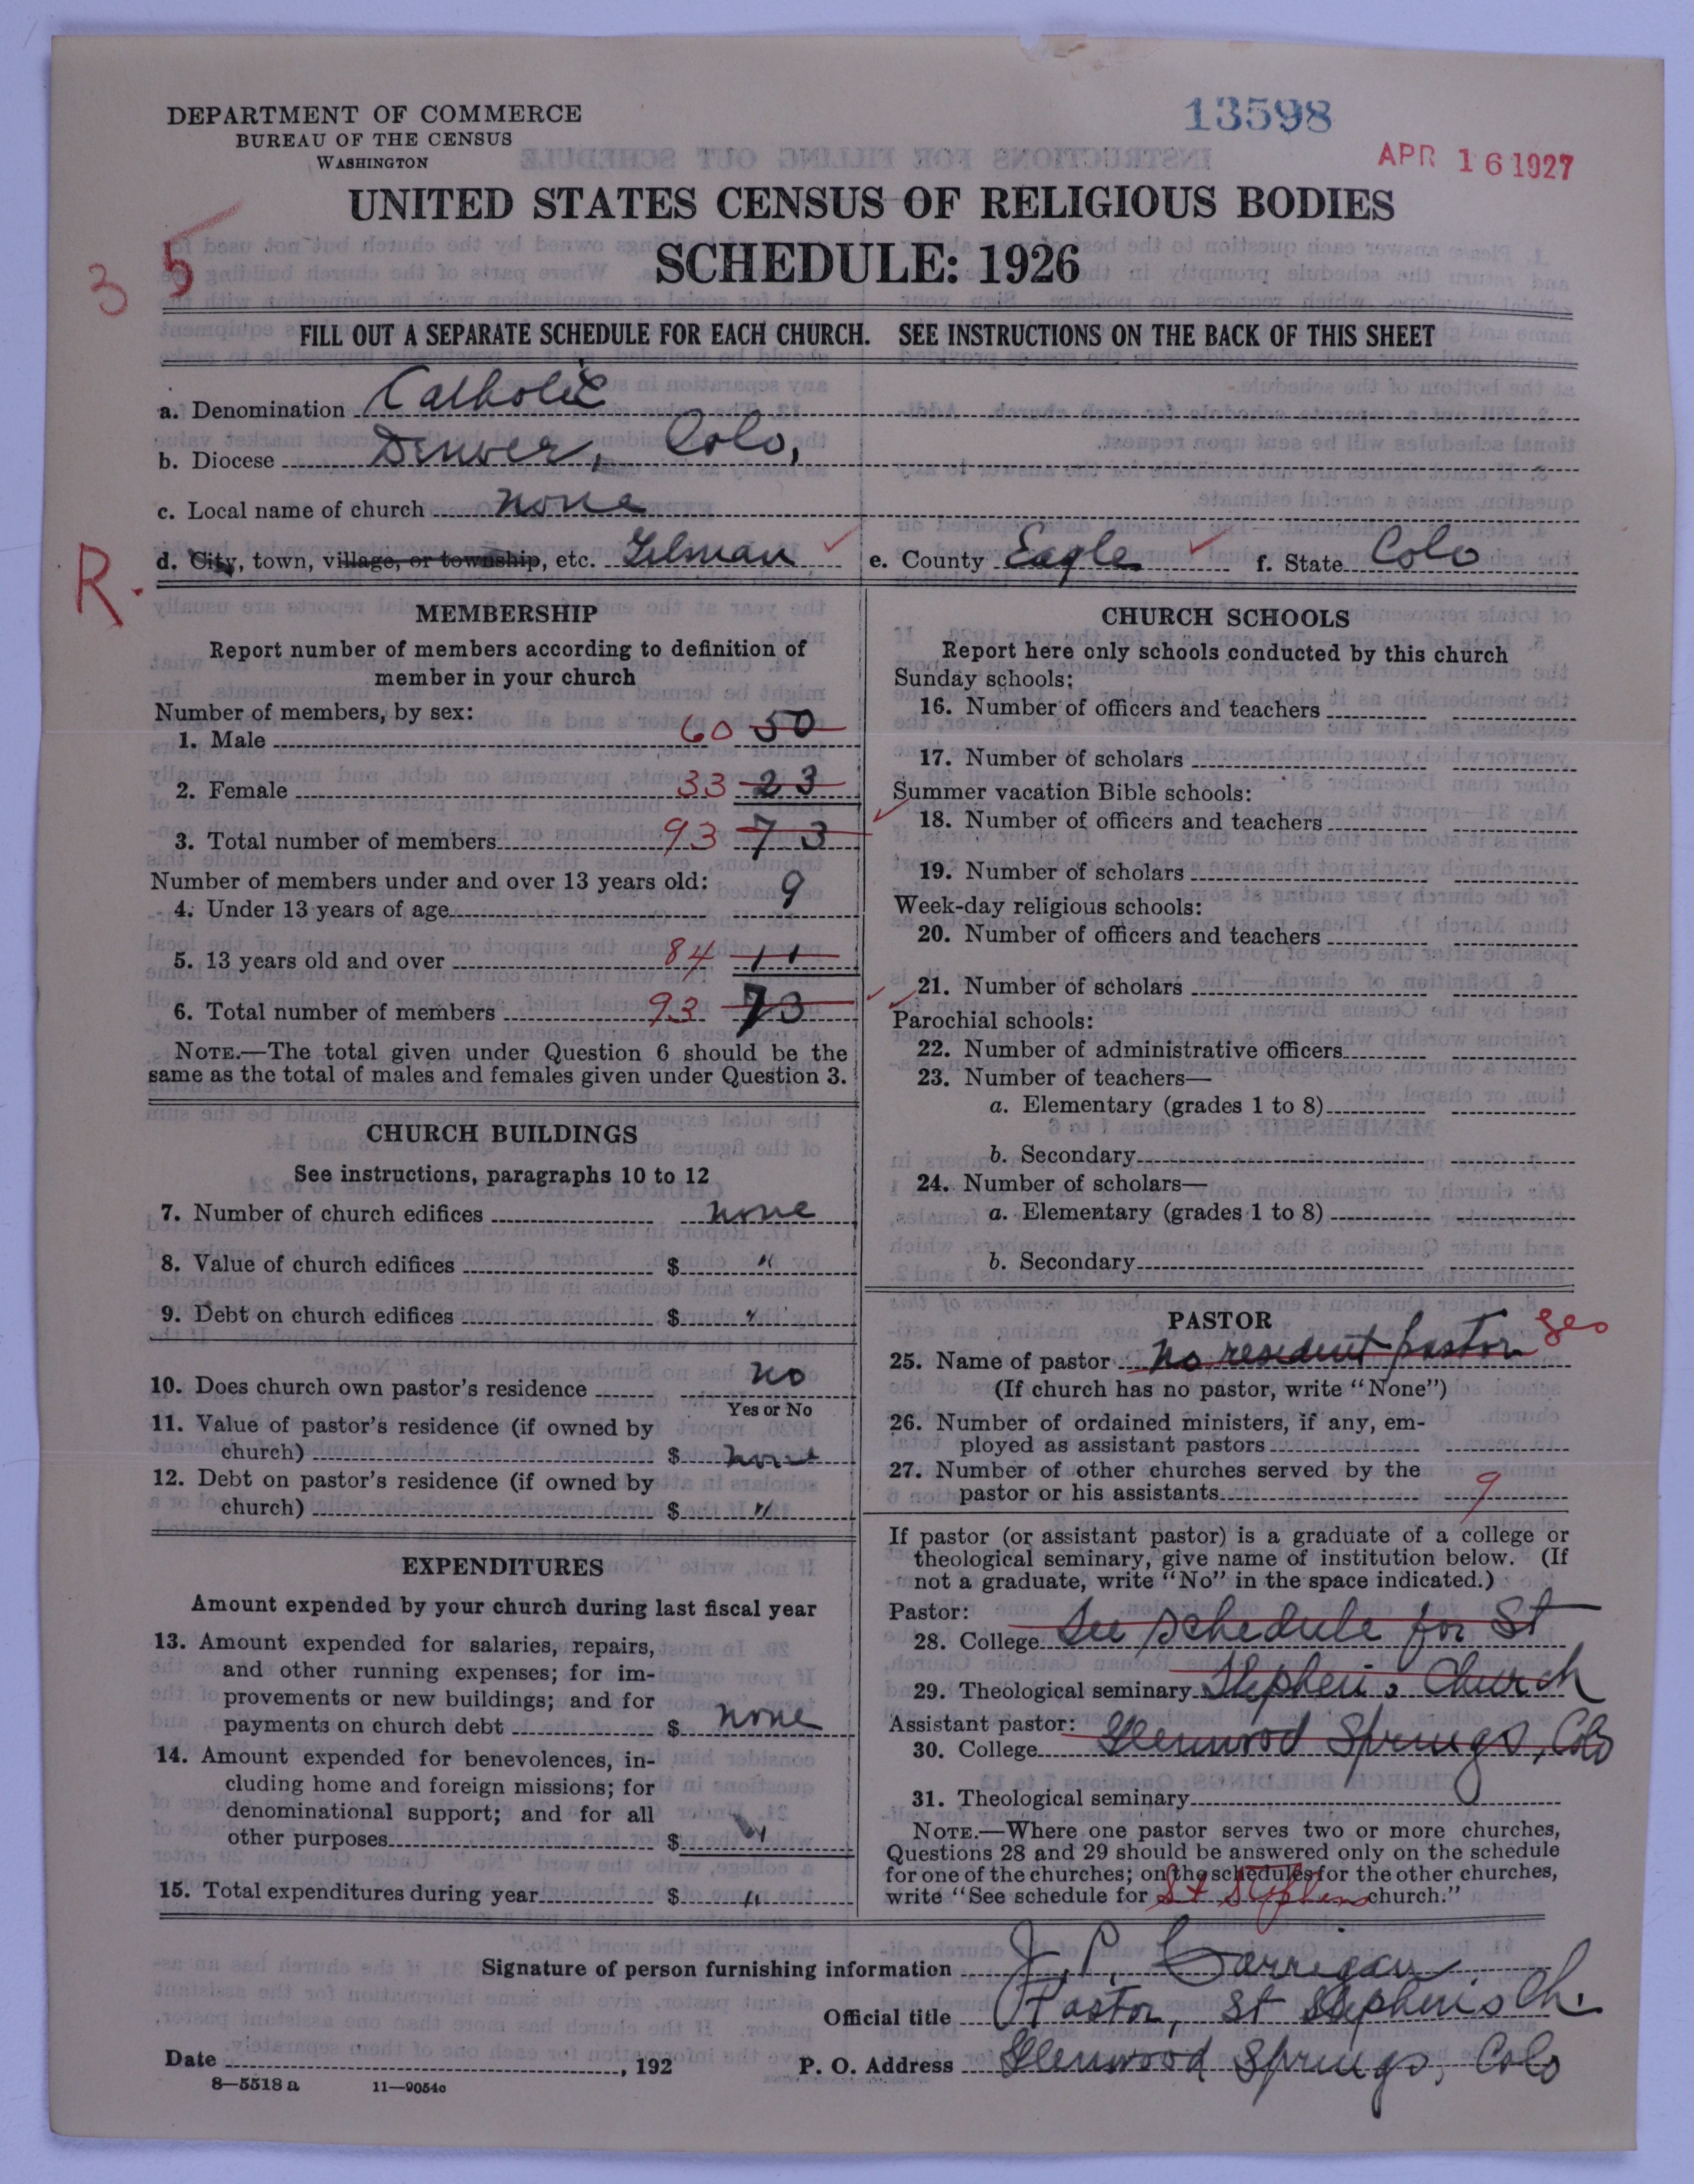 DEPARTMENT OF COMMERCE
BUREAU OF THE CENSUS
WASHINGTON
13598
APR 16 1927
UNITED STATES CENSUS OF RELIGIOUS BODIES
SCHEDULE: 1926
3 5
FILL OUT A SEPARATE SCHEDULE FOR EACH CHURCH. SEE INSTRUCTIONS ON THE BACK OF THIS SHEET
a. Denomination Catholic
b. Diocese Denver, Colo,
c. Local name of church none
R.
d. City, town, village, or township, etc. Gilman e. County Eagle f. State Colo
MEMBERSHIP
Report number of members according to definition of
member in your church
Number of members, by sex:
1. Male 60 50
2. Female 33 23
3. Total number of members 93 73
Number of members under and over 13 years old:
4. Under 13 years of age 9
5. 13 years old and over 84 11
6. Total number of members 93 73
NOTE.—The total given under Question 6 should be the
same as the total of males and females given under Question 3.
CHURCH BUILDINGS
See instructions, paragraphs 10 to 12
7. Number of church edifices none
8. Value of church edifices $ "
9. Debt on church edifices $ "
10. Does church own pastor's residence no
Yes or No
11. Value of pastor's residence (if owned by
church) $ none
12. Debt on pastor's residence (if owned by
church) $ "
EXPENDITURES
Amount expended by your church during last fiscal year
13. Amount expended for salaries, repairs,
and other running expenses; for im-
provements or new buildings; and for
payments on church debt $ none
14. Amount expended for benevolences, in-
cluding home and foreign missions; for
denominational support; and for all
other purposes $ "
15. Total expenditures during year $ "
CHURCH SCHOOLS
Report here only schools conducted by this church
Sunday schools:
16. Number of officers and teachers
17. Number of scholars
Summer vacation Bible schools:
18. Number of officers and teachers
19. Number of scholars
Week-day religious schools:
20. Number of officers and teachers
21. Number of scholars
Parochial schools:
22. Number of administrative officers
23. Number of teachers—
a. Elementary (grades 1 to 8)
b. Secondary
24. Number of scholars—
a. Elementary (grades 1 to 8)
b. Secondary
PASTOR
25. Name of pastor no resident pastor
(If church has no pastor, write "None")
26. Number of ordained ministers, if any, em-
ployed as assistant pastors
27. Number of other churches served by the
pastor or his assistants 9
If pastor (or assistant pastor) is a graduate of a college or
theological seminary, give name of institution below. (If
not a graduate, write "No" in the space indicated.)
Pastor:
28. College See schedule for St
29. Theological seminary Stephen's Church
Assistant pastor:
30. College Glenwood Springs, Colo
31. Theological seminary
NOTE.—Where one pastor serves two or more churches,
Questions 28 and 29 should be answered only on the schedule
for one of the churches; on the schedules for the other churches,
write "See schedule for St Stephens church."
Signature of person furnishing information J. P. Carrigan
Official title Pastor, St Stephen's Ch.
Date , 192 P. O. Address Glenwood Springs, Colo
8—5518 a 11—9054c